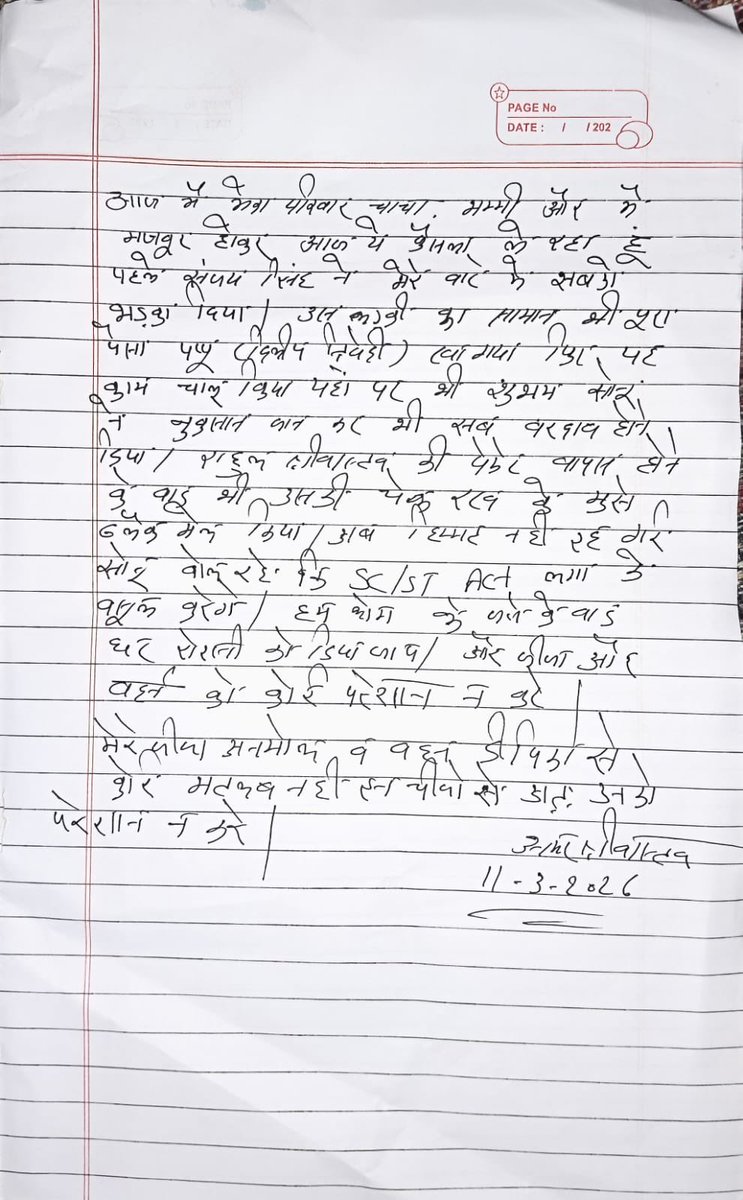 PAGE No
DATE : / / 202
आज मै मेरा परिवार चाचा, मम्मी और मै
मजबूर होकर आज ये फैसला ले रहा हूं
पहले संजय सिंह ने मेरे बारे मे सबको
भड़का दिया / उस का सामान भी पूरा
पैसा पप्पू (दिलीप त्रिवेदी) खा गया फिर यह
काम चालू किया यहां पर भी शुभम सोई
ने नुकसान जान कर भी सब होने
दिया / राहुल श्रीवास्तव की पेमेंट वापस होने
के बाद भी उसकी चेक रख के मुझे
ब्लैक मेल किया / अब हिम्मत नही रह गई
सोई बोल रहे कि SC/ST Act लगा के
वसूल करेगे / हम लोगो के जाने के बाद
घर को दिया जाय / और जीजा और
बहन को कोई परेशान न करे |
मेरे जीजा अनमोल व बहन दीपिका से
कोई मतलब नही इन चीजो से अतः उनको
परेशान न करे |
श्रीवास्तव
11-3-2026